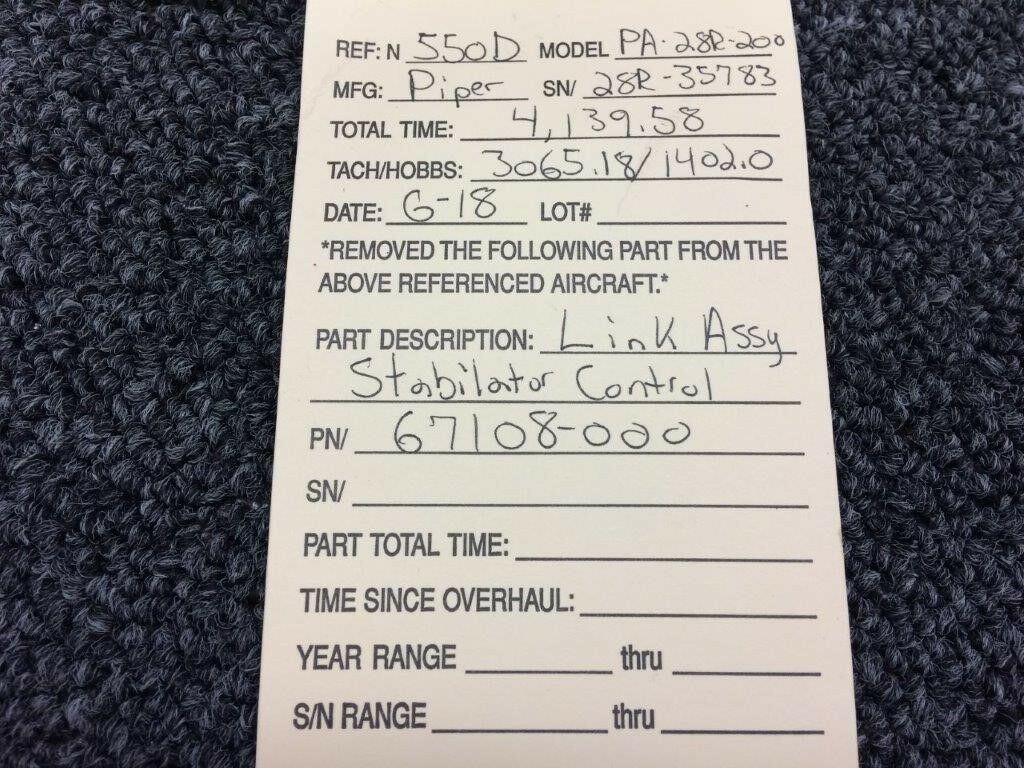 REF: N 550D MODEL PA-28R-200
MFG: Piper SN/ 28R-35783
TOTAL TIME: 4,139.58
TACH/HOBBS: 3065.18/1402.0
DATE: 6-18 LOT#
*REMOVED THE FOLLOWING PART FROM THE
ABOVE REFERENCED AIRCRAFT.*
PART DESCRIPTION: Link Assy
Stabilator Control
PN/ 67108-000
SN/
PART TOTAL TIME:
TIME SINCE OVERHAUL:
YEAR RANGE thru
S/N RANGE thru